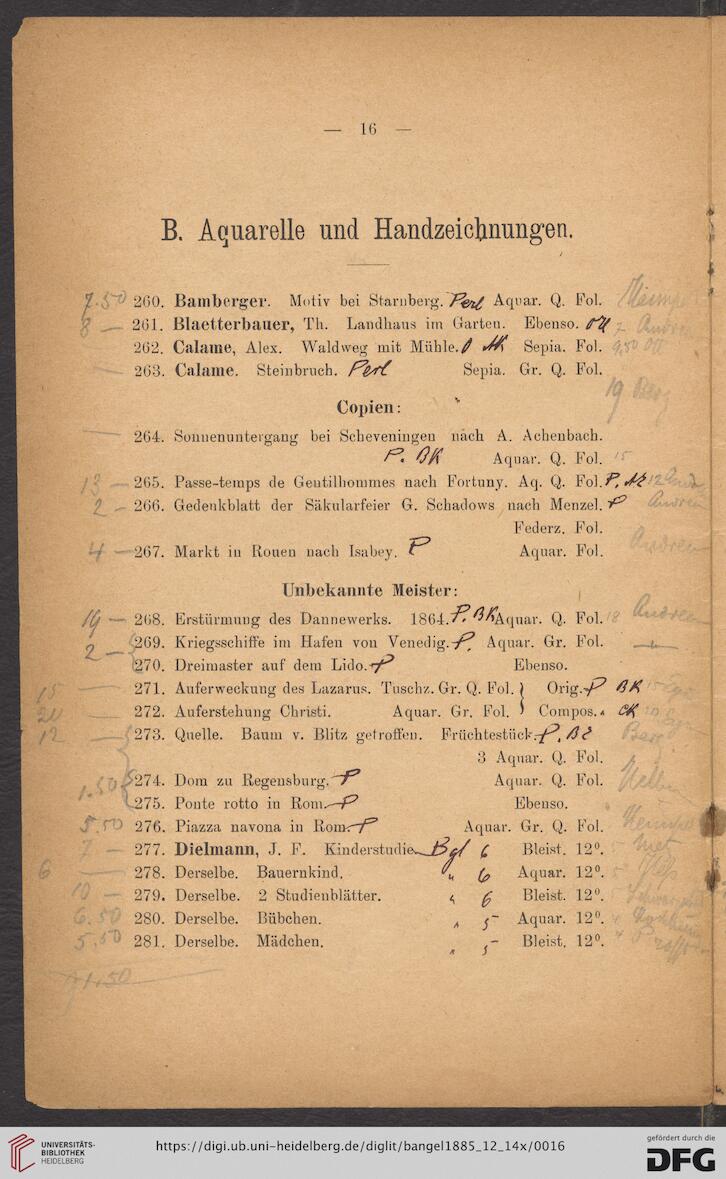 — 16 —
B. Aquarelle und Handzeichnungen.
7.50 260. Bamberger. Motiv bei Starnberg. Perl Aquar. Q. Fol.
8 — 261. Blaetterbauer, Th. Landhaus im Garten. Ebenso.
262. Calame, Alex. Waldweg mit Mühle. Sepia. Fol.
— 263. Calame. Steinbruch. Perl Sepia. Gr. Q. Fol.
19 Berg
Copien:
— 264. Sonnenuntergang bei Scheveningen nach A. Achenbach.
P. BK Aquar. Q. Fol. 15
13 — 265. Passe-temps de Gentilhommes nach Fortuny. Aq. Q. Fol. P. 12
2 — 266. Gedenkblatt der Säkularfeier G. Schadows nach Menzel. P
Federz. Fol.
4 — 267. Markt in Rouen nach Isabey. P Aquar. Fol.
Unbekannte Meister:
19 — 268. Erstürmung des Dannewerks. 1864. P. BK Aquar. Q. Fol. 18
2 — 269. Kriegsschiffe im Hafen von Venedig. P. Aquar. Gr. Fol.
270. Dreimaster auf dem Lido. P Ebenso.
15 — 271. Auferweckung des Lazarus. Tuschz. Gr. Q. Fol. } Orig. P BK
— 272. Auferstehung Christi. Aquar. Gr. Fol. } Compos.
12 — 273. Quelle. Baum v. Blitz getroffen. Früchtestück. P. Berg
3 Aquar. Q. Fol.
1.50 274. Dom zu Regensburg. P Aquar. Q. Fol.
275. Ponte rotto in Rom. P Ebenso.
5.50 276. Piazza navona in Rom. P Aquar. Gr. Q. Fol.
7 — 277. Dielmann, J. F. Kinderstudie. Bgl 6 Bleist. 12⁰.
6 — 278. Derselbe. Bauernkind. " 6 Aquar. 12⁰.
10 — 279. Derselbe. 2 Studienblätter. " 6 Bleist. 12⁰.
6.50 280. Derselbe. Bübchen. " 5 Aquar. 12⁰.
5.50 281. Derselbe. Mädchen. " 5 Bleist. 12⁰.
71.50
UNIVERSITÄTS-
BIBLIOTHEK
HEIDELBERG
https://digi.ub.uni-heidelberg.de/diglit/bangel1885_12_14x/0016
gefördert durch die
DFG